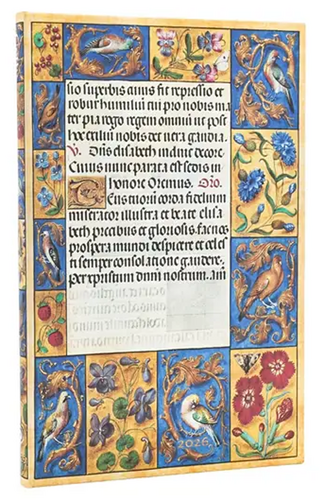 sio superbis aiius fit repressio et
robur humiliu cui pro nobis ma
ter pia rogo regem omniu ut post
hoc exiliu nobis det vera gaudia.
V. Dns elisabeth induit decore
Civius nunc parata est sedis in
honore Oremus. Oro.
Tuorū corda fidelium
miserator illustra et beate elisa
beth precibus et gloriosis fac nos
prospera mundi despicere et celes
ti semper consolatione gaudere.
Per xpristum dnm nostrum. am
2026